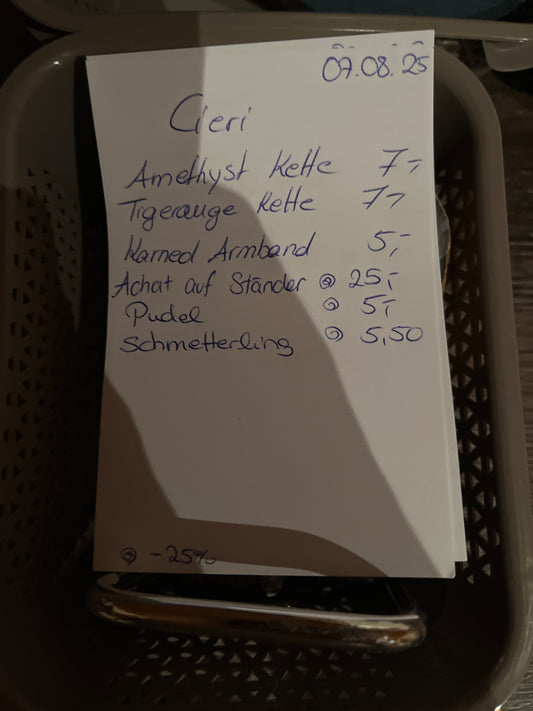 07.08.25
Geri
Amethyst Kette 7,-
Tigerauge Kette 7,-
Karneol Armband 5,-
Achat auf Ständer 25,-
Pudel 5,-
Schmetterling 5,50
-25%